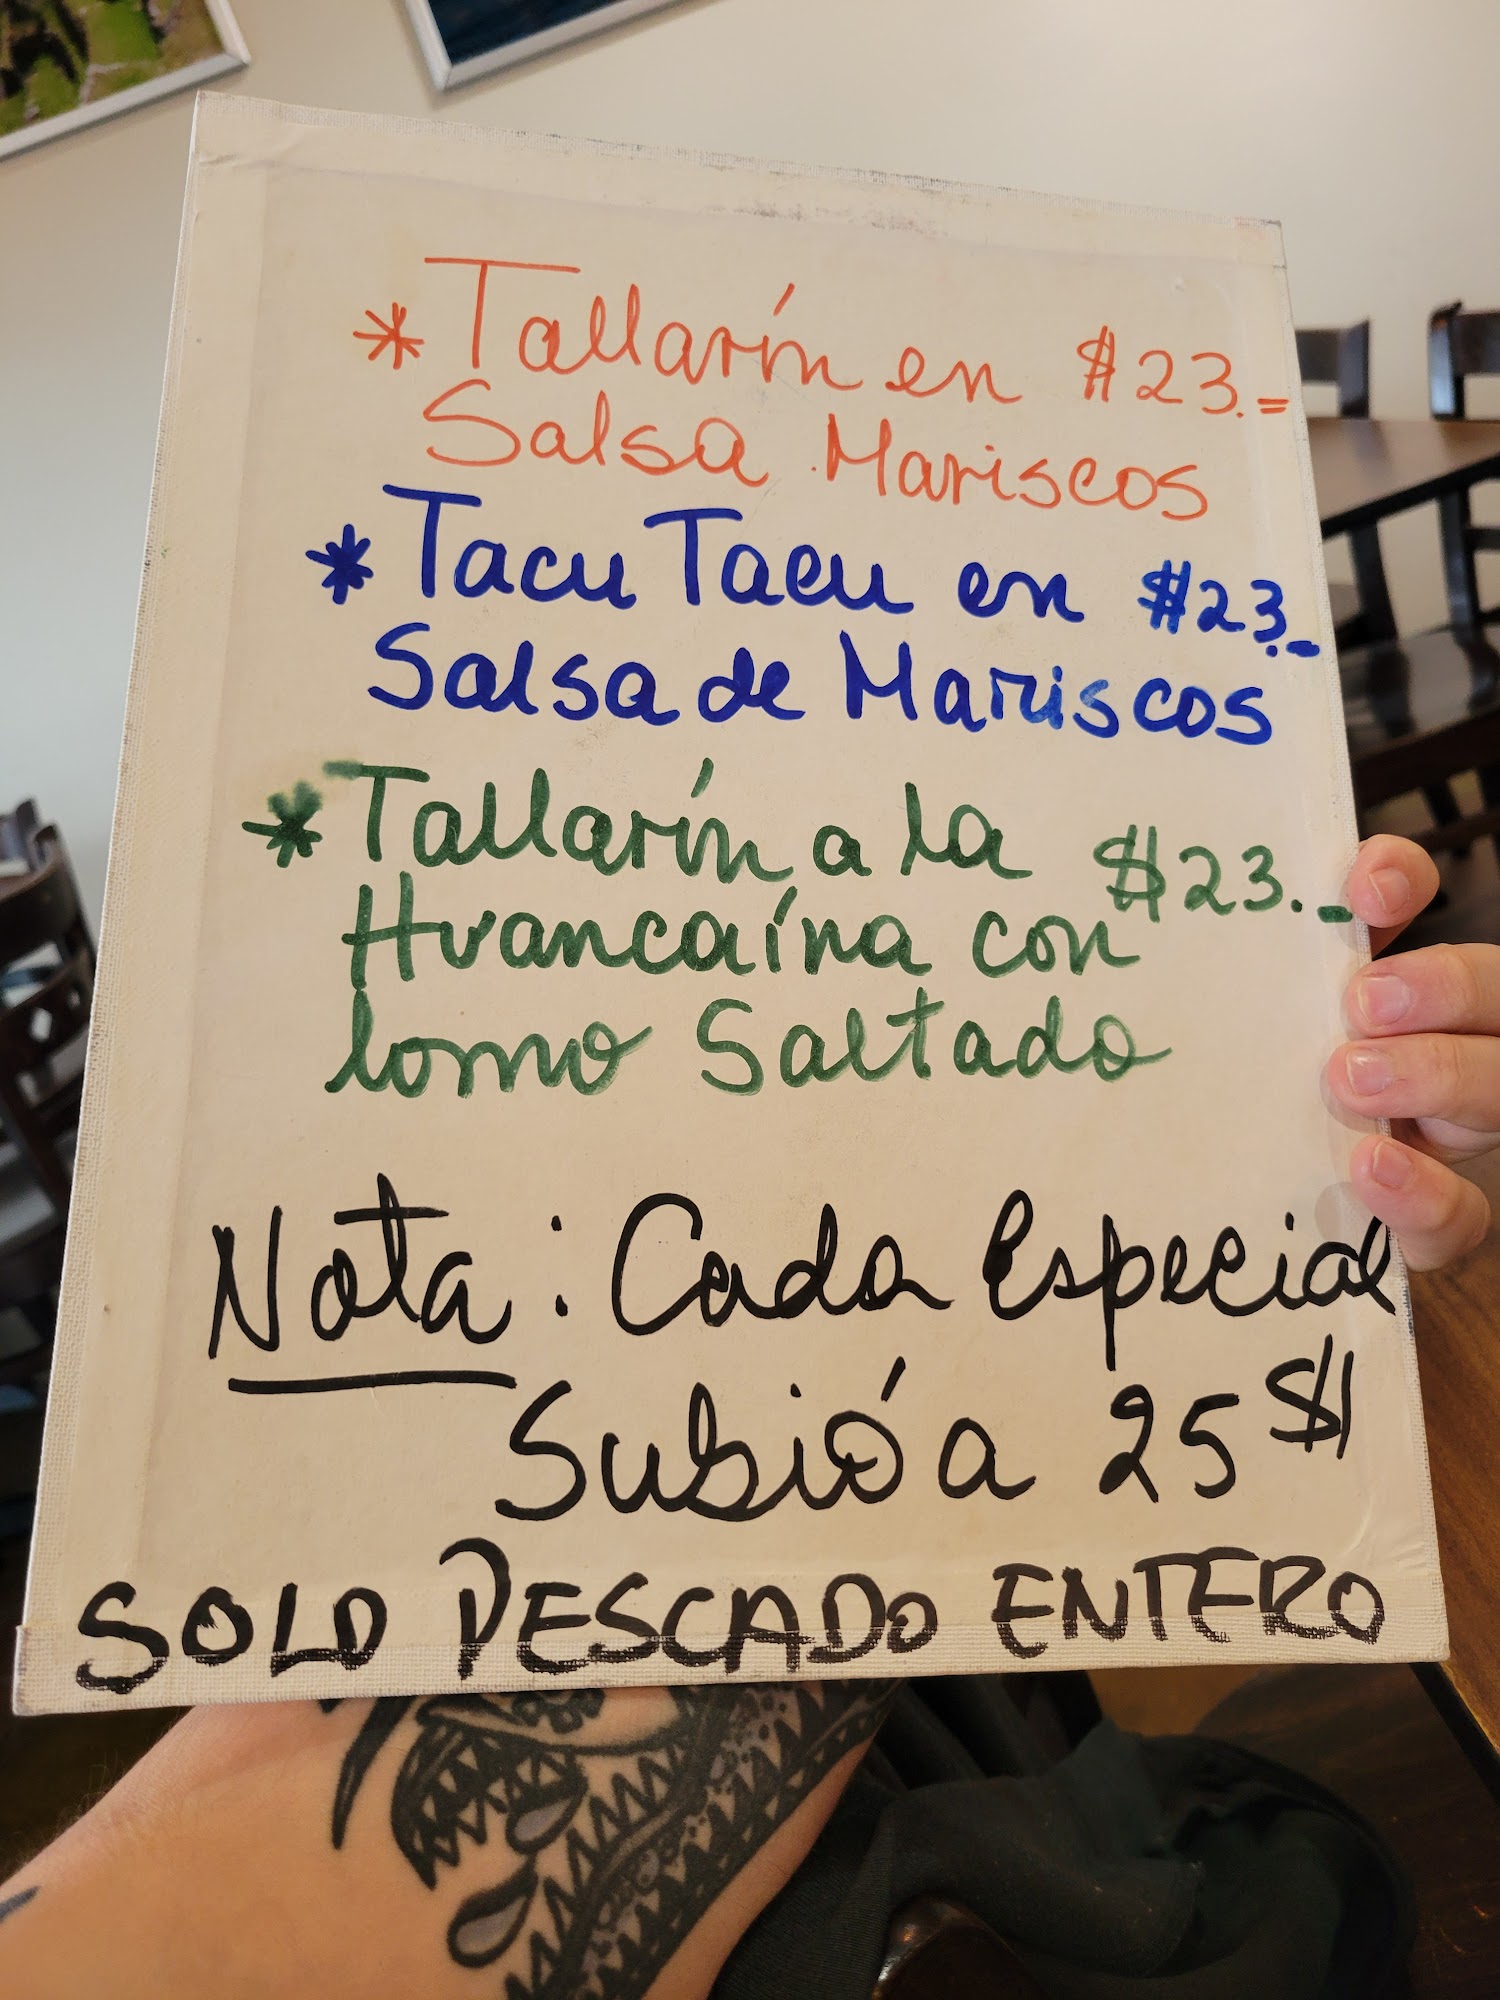 * Tallarín en $23.=
Salsa Mariscos
* Tacu Tacu en $23.-
Salsa de Mariscos
* Tallarín a la $23.-
Huancaína con
lomo Saltado
Nota: Cada Especial
Subió a 25 $
SOLO PESCADO ENTERO